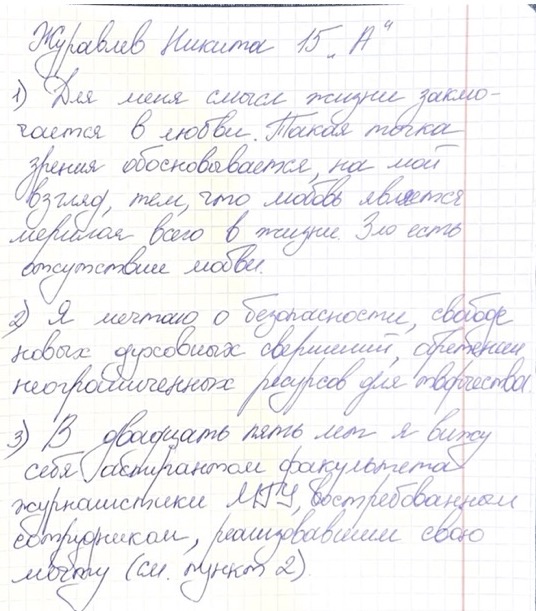 Журавлев Никита 15 „А"
1) Для меня смысл жизни заклю-
чается в любви. Такая точка
зрения обосновывается, на мой
взгляд, тем, что любовь является
мерилом всего в жизни. Зло есть
отсутствие любви.
2) Я мечтаю о безопасности, свободе
новых духовных свершений, обретении
неограниченных ресурсов для творчества.
3) В двадцать пять лет я вижу
себя аспирантом факультета
журналистики МГУ, востребованным
сотрудником, реализовавшим свою
мечту (см. пункт 2).